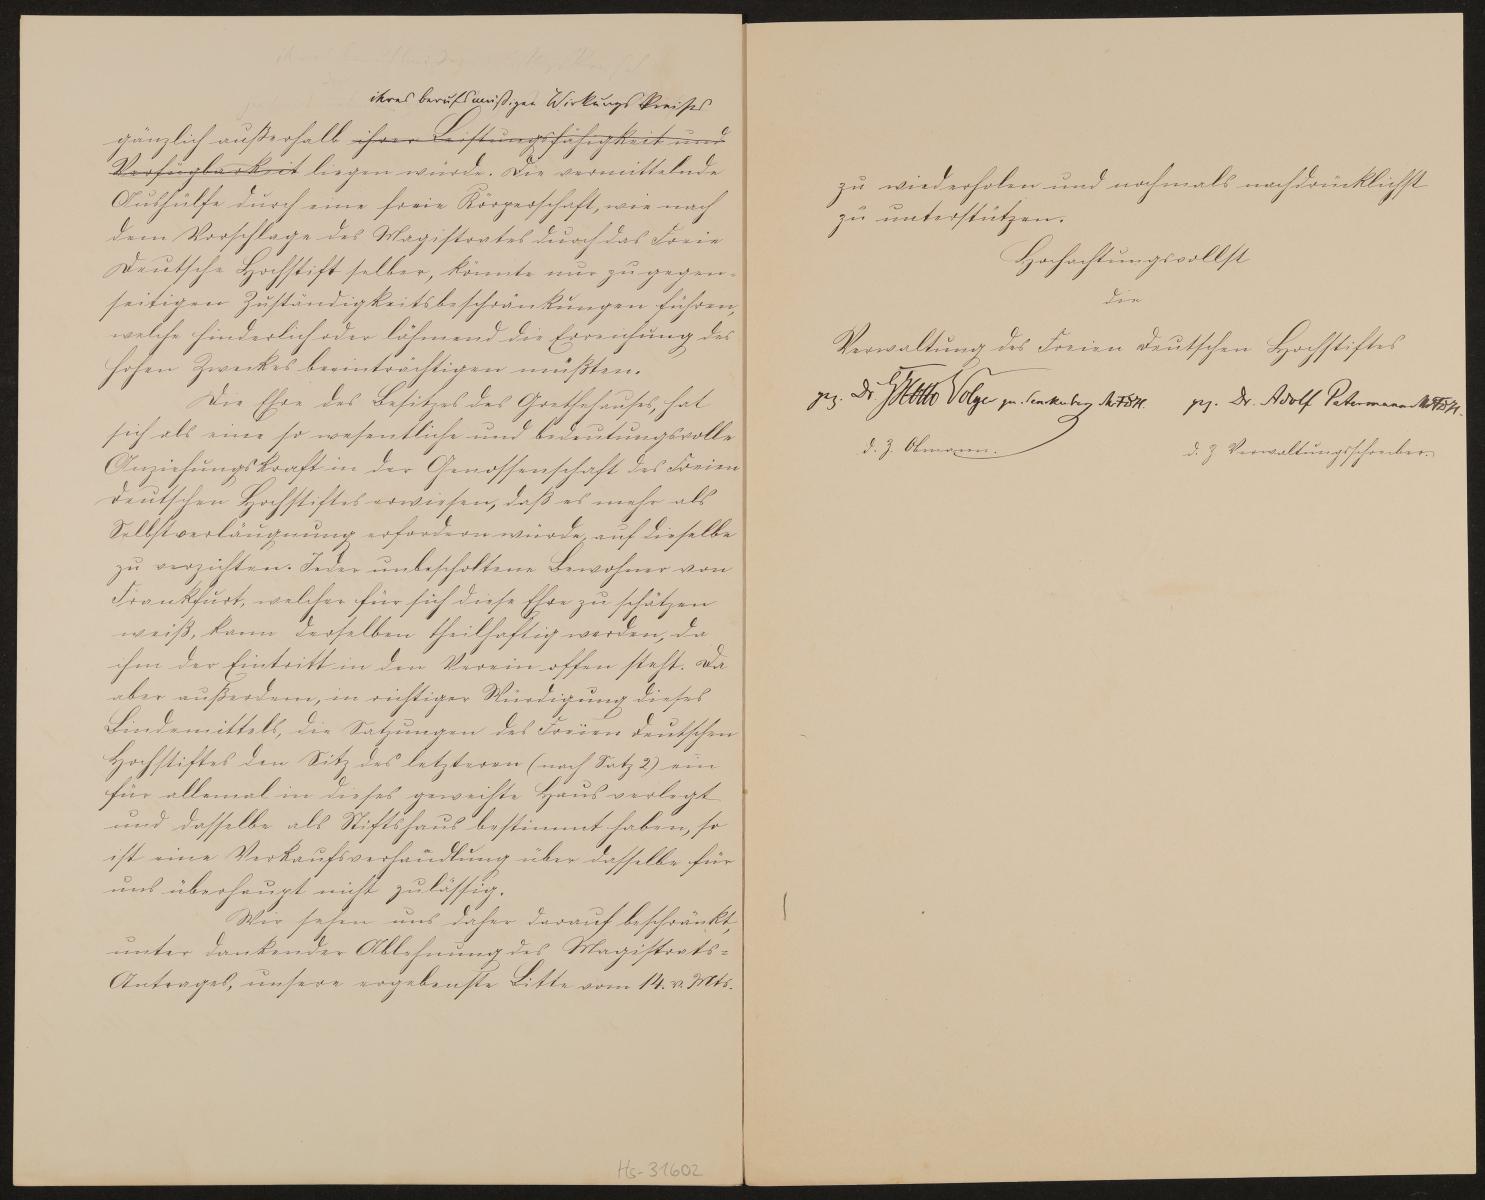 ihres berufsmäßigen Wirkungskreises
gänzlich außerhalb ihrer Leistungsfähigkeit und
Verfügbarkeit liegen würde. Die vermittelnde
Aushülfe durch eine freie Körperschaft, wie nach
dem Vorschlage des Magistrates durch das Freie
Deutsche Hochstift selber, könnte nur zu gegen-
seitigen Zuständigkeitsbeschränkungen führen,
welche hinderlich oder lähmend die Erreichung des
hohen Zweckes beeinträchtigen müßten.
Die Ehre des Besitzes des Goethehauses, hat
sich als eine so wesentliche und bedeutungsvolle
Anziehungskraft in der Genossenschaft des Freien
Deutschen Hochstiftes erwiesen, daß es mehr als
Selbstverläugnung erfordern würde, auf dieselbe
zu verzichten. Jeder unbescholtene Bewohner von
Frankfurt, welcher für sich diese Ehre zu schätzen
weiß, kann derselben theilhaftig werden, da
ihm der Eintritt in den Verein offen steht. Da
aber außerdem, in richtiger Würdigung dieses
Bindemittels, die Satzungen des Freien Deutschen
Hochstiftes den Sitz des letzteren (nach Satz 2) ein
für allemal in dieses geweihte Haus verlegt
und dasselbe als Stiftshaus bestimmt haben, so
ist eine Verkaufsverhandlung über dasselbe für
uns überhaupt nicht zulässig.
Wir sehen uns daher darauf beschränkt,
unter dankender Ablehnung des Magistrats-
Antrages, unsere ergebenste Bitte vom 14. v. Mts.
Hs-31602
zu wiederholen und nochmals nachdrücklichst
zu unterstützen.
Hochachtungsvollst
die
Verwaltung des Freien Deutschen Hochstiftes
gez. Dr. Otto Volger gen. Senckenberg MFDH.
gez. Dr. Adolf Petermann MFDH.
d. Z. Obmann.
d. Z Verwaltungsschreiber.